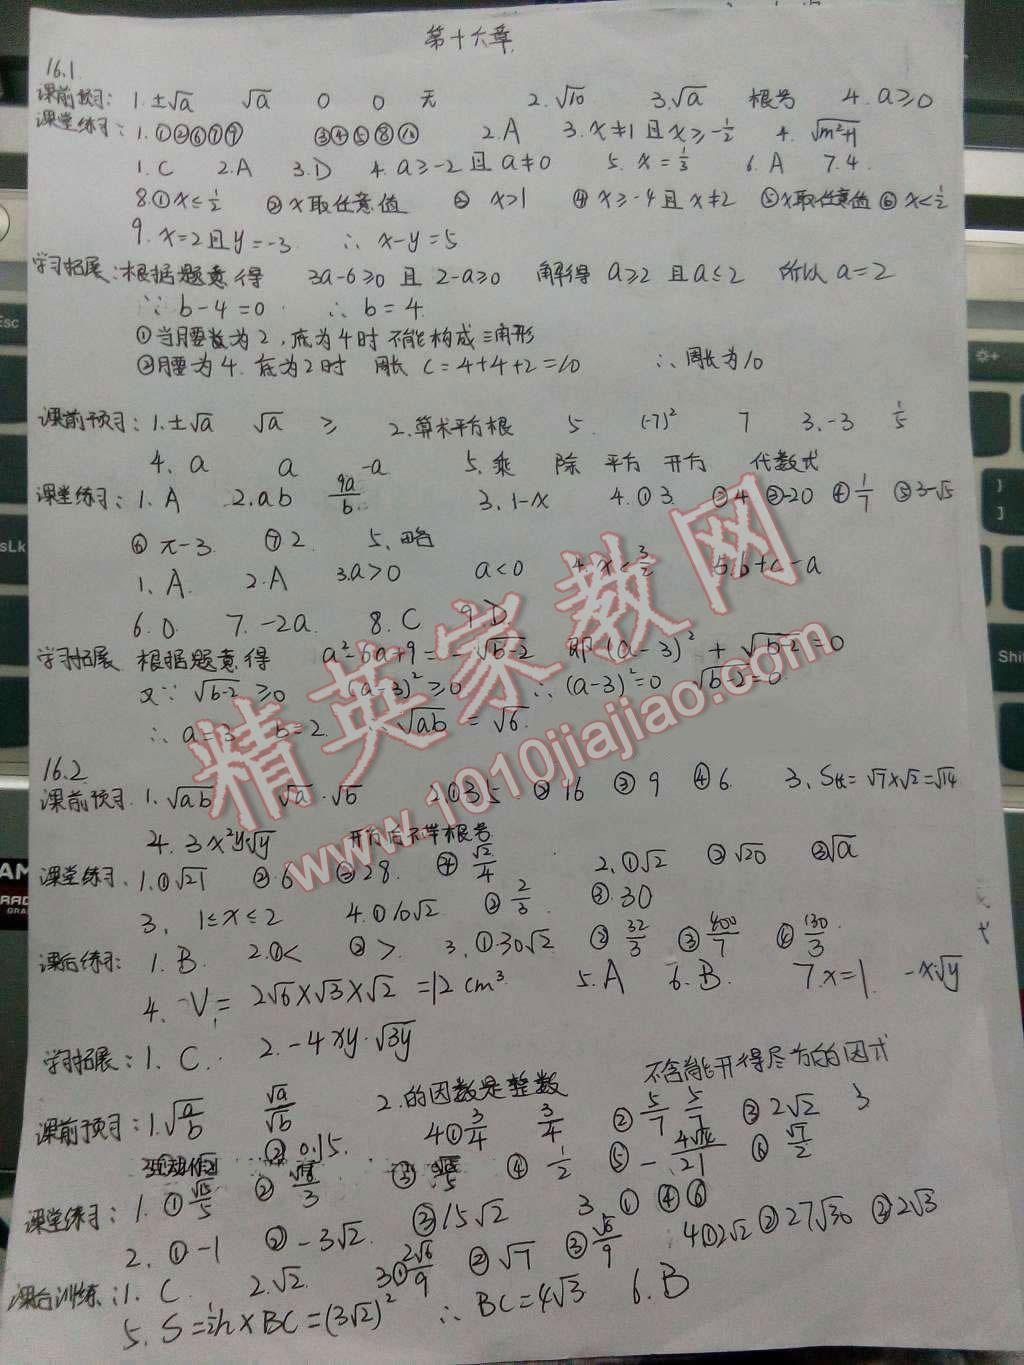 第十六章
16.1
课前预习: 1.±√a √a 0 0 无 2.√10 3.√a 根号 4.a≥0
课堂练习: 1.①②⑥⑦⑨ ③④⑤⑧⑩ 2.A 3.x≠1且x≥-1/2 4.√(m²+1)
1.C 2.A 3.D 4.a≥-2且a≠0 5.x=1/3 6.A 7.4.
8.①x≤1/2 ②x取任意值 ③x>1 ④x≥-4且x≠2 ⑤x取任意值 ⑥x<1/2
9.x=2且y=-3 ∴x-y=5
学习拓展:根据题意得 3a-6≥0且2-a≥0 解得a≥2且a≤2 所以a=2
∵b-4=0 ∴b=4.
①当腰长为2,底为4时不能构成三角形
②腰为4.底为2时 周长C=4+4+2=10 ∴周长为10
课前预习: 1.±√a √a ≥ 2.算术平方根 5. (-7)² 7 3.-3 1/5
4.a a -a 5.乘 除 平方 开方 代数式
课堂练习: 1.A 2.ab 9a/b 3.1-x 4.①3 ②4 ③-20 ④1/7 ⑤3-√5
⑥π-3. ⑦2. 5.略
1.A. 2.A 3.a>0 a<0 4.x<3/2 5.b+c-a
6.0 7.-2a. 8.C 9.D
学习拓展 根据题意得 a²-6a+9=-√(b-2) 即(a-3)²+√(b-2)=0
又∵√(b-2)≥0 (a-3)²≥0 ∴(a-3)²=0 √(b-2)=0
∴a=3 b=2. √(ab)=√6.
16.2
课前预习 1.√(ab) √a·√b 2.①35 ②16 ③9 ④6. 3.S=√7×√2=√14
4.3x²y√y 开方后不带根号
课堂练习. 1.①√21 ②6 ③28. ④√2/4 2.①√2 ②√20 ③√a
3. 1≤x≤2 4.①16√2 ②2/3. ③30
课后练习: 1.B. 2.①< ②>. 3.①30√2 ②32/3 ③400/7 ④130/3
4.V=2√6×√3×√2=12cm³ 5.A 6.B. 7.x=1. -x√y
学习拓展: 1.C. 2.-4xy·√(3y)
课前预习: 1.√(a/b) √a/√b 2.的因数是整数 不含能开得尽方的因式
4①3/4 3/4 ②5/7 5/7 ③2√2 3
②0.15. ④1/2 ⑥√7/2
课堂练习: 1.①√15/5 ②
2.①-1 ②-3√2. ③15√2 3.①④⑥
课后训练: 1.C 2.√2. 3①2√6/9 ②√7 ③√6/9 4①2√2 ②27√30 ③2√3
5.S=1/2h×BC=(3√2)² ∴BC=4√3 6.B
精英家教网
www.1010jiajiao.com